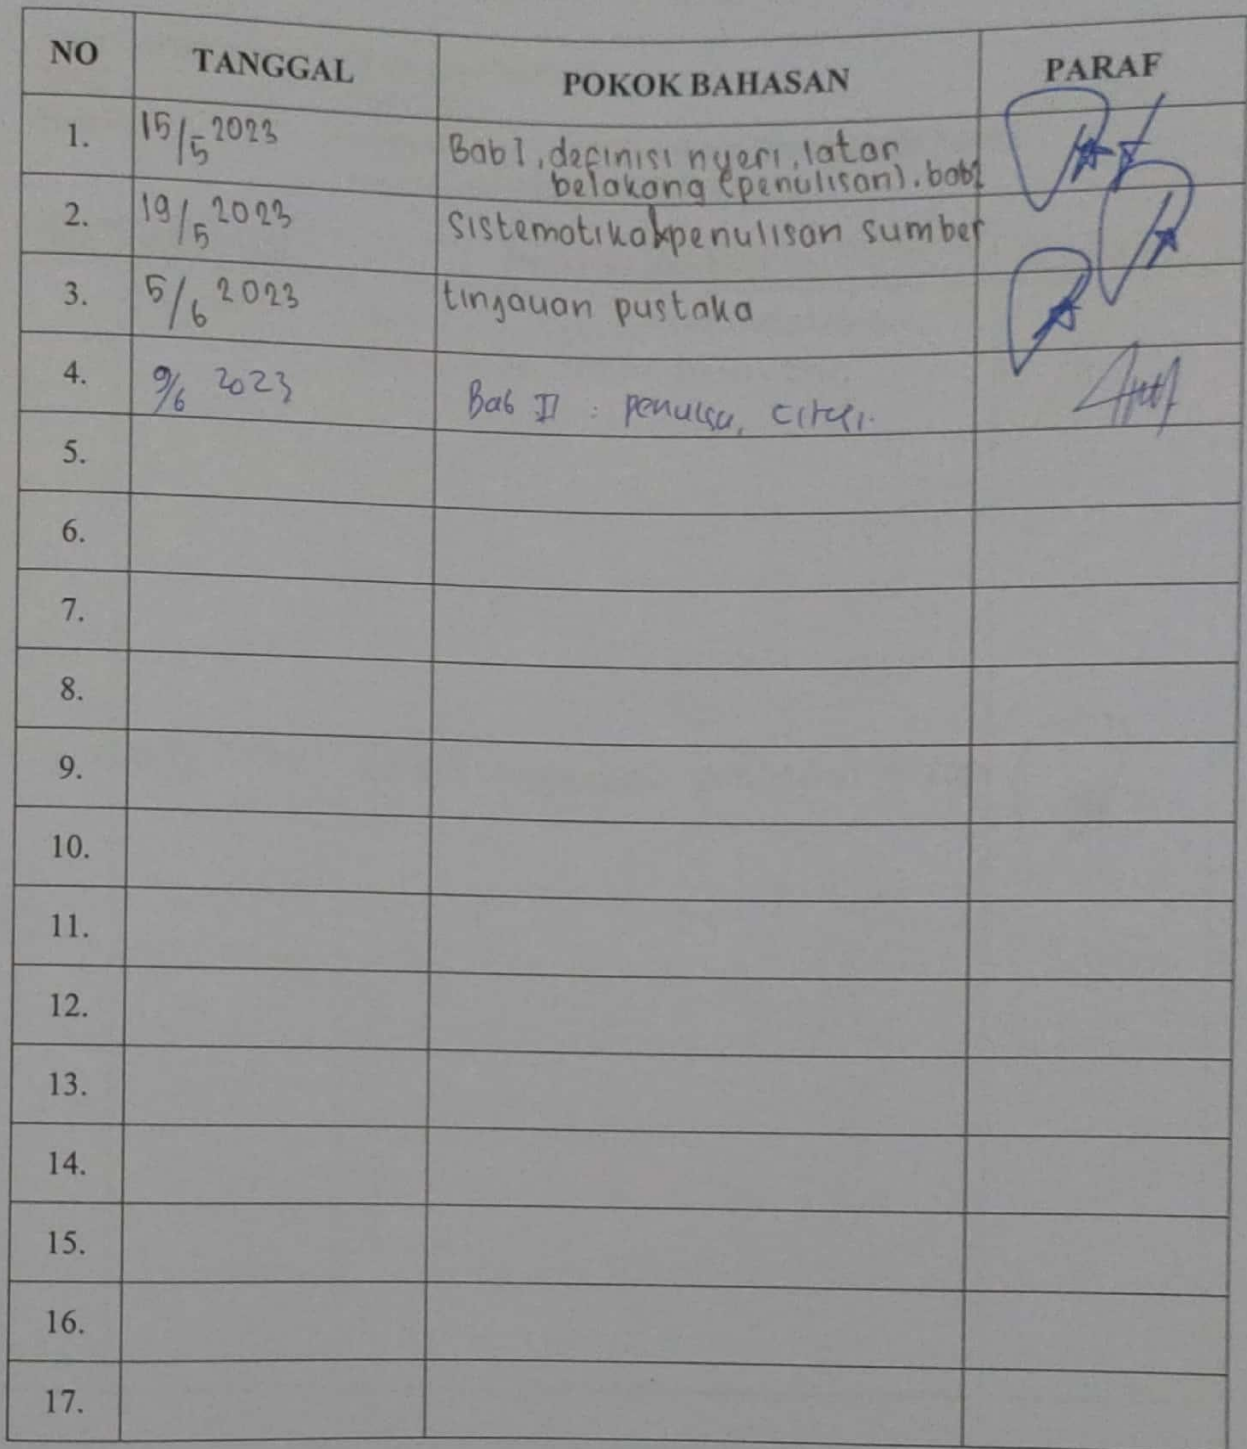 NO TANGGAL POKOK BAHASAN PARAF
1. 15/5 2023 Bab 1, definisi nyeri, latar
belakang (penulisan). bab 2
2. 19/5 2023 Sistematika penulisan sumber
3. 5/6 2023 tinjauan pustaka
4. 9/6 2023 Bab II :
5.
6.
7.
8.
9.
10.
11.
12.
13.
14.
15.
16.
17.